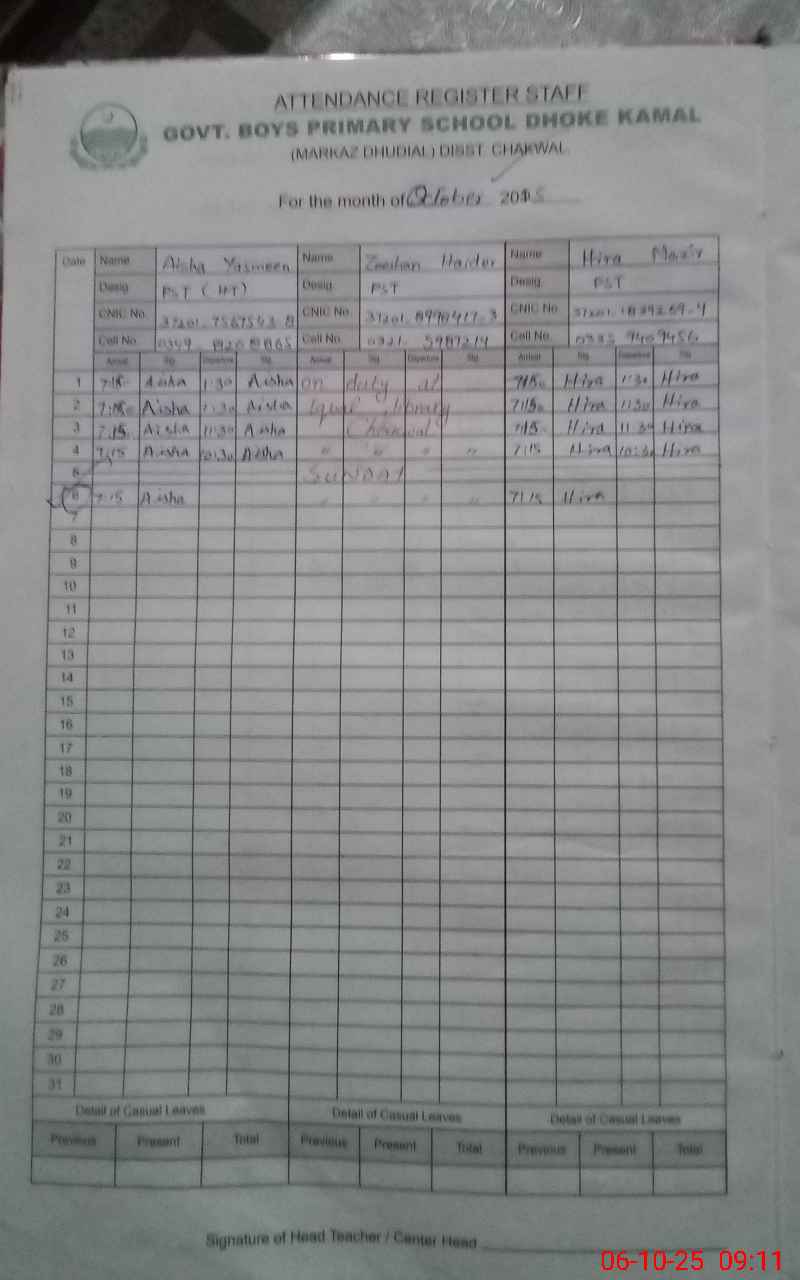 ATTENDANCE REGISTER STAFF
GOVT. BOYS PRIMARY SCHOOL DHOKE KAMAL
(MARKAZ DHUDIAL) DISST. CHAKWAL
For the month of October 20
Date Name Aisha Yasmeen Name Zeeshan Haider Name Hira
Desig. PST Desig. PST Desig. PST
CNIC No. CNIC No. CNIC No.
Cell No. Cell No. 0321 Cell No.
Arrival Sig. Departure Sig. Arrival Sig. Departure Sig. Arrival Sig. Departure Sig.
1 7:15 Aisha 1:30 Aisha on duty at 7:15 Hira 1:30 Hira
2 7:15 Aisha 1:30 Aisha library 7:15 Hira 1:30 Hira
3 7:15 Aisha 11:30 Aisha Chakwal 7:15 Hira 11:30 Hira
4 7:15 Aisha 10:30 Aisha " " " " 7:15 Hira 10:30 Hira
5 SUNDAY
6 7:15 Aisha " " " " 7:15 Hira
7
8
9
10
11
12
13
14
15
16
17
18
19
20
21
22
23
24
25
26
27
28
29
30
31
Detail of Casual Leaves Detail of Casual Leaves Detail of Casual Leaves
Previous Present Total Previous Present Total Previous Present Total
Signature of Head Teacher / Center Head
06-10-25 09:11